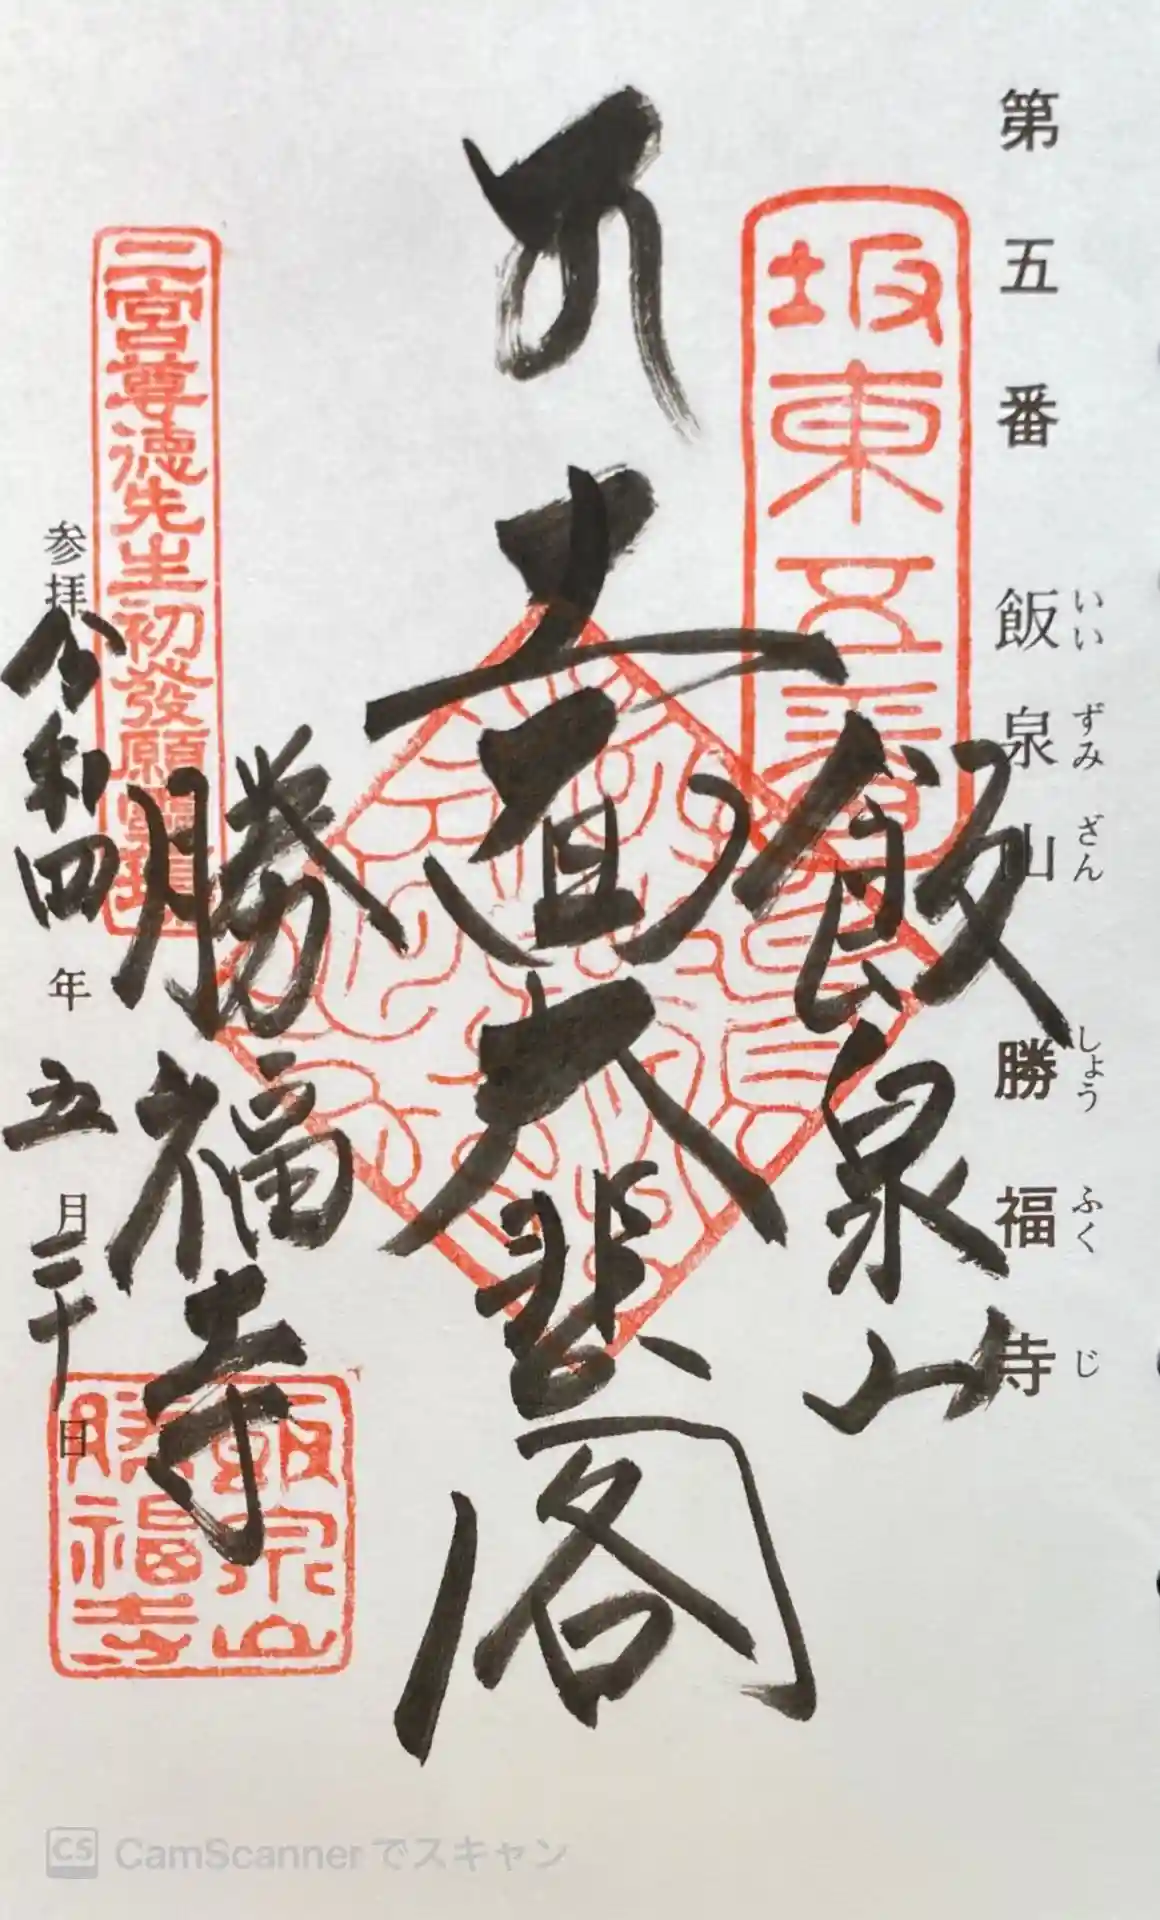 第五番 飯泉山 勝福寺
いいずみざん しょうふくじ
坂東五番
飯泉山
大悲閣
勝福寺
二宮尊徳先生初發願
参拝 令和四年五月二十日
飯泉山
勝福寺
CS CamScannerでスキャン